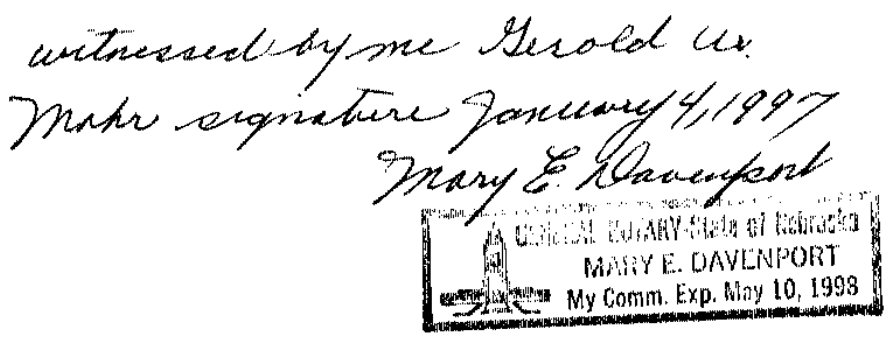 witnessed by me Gerold W.
Mohr signature January 4, 1997
Mary E. Davenport
GENERAL NOTARY-State of Nebraska
MARY E. DAVENPORT
My Comm. Exp. May 10, 1998